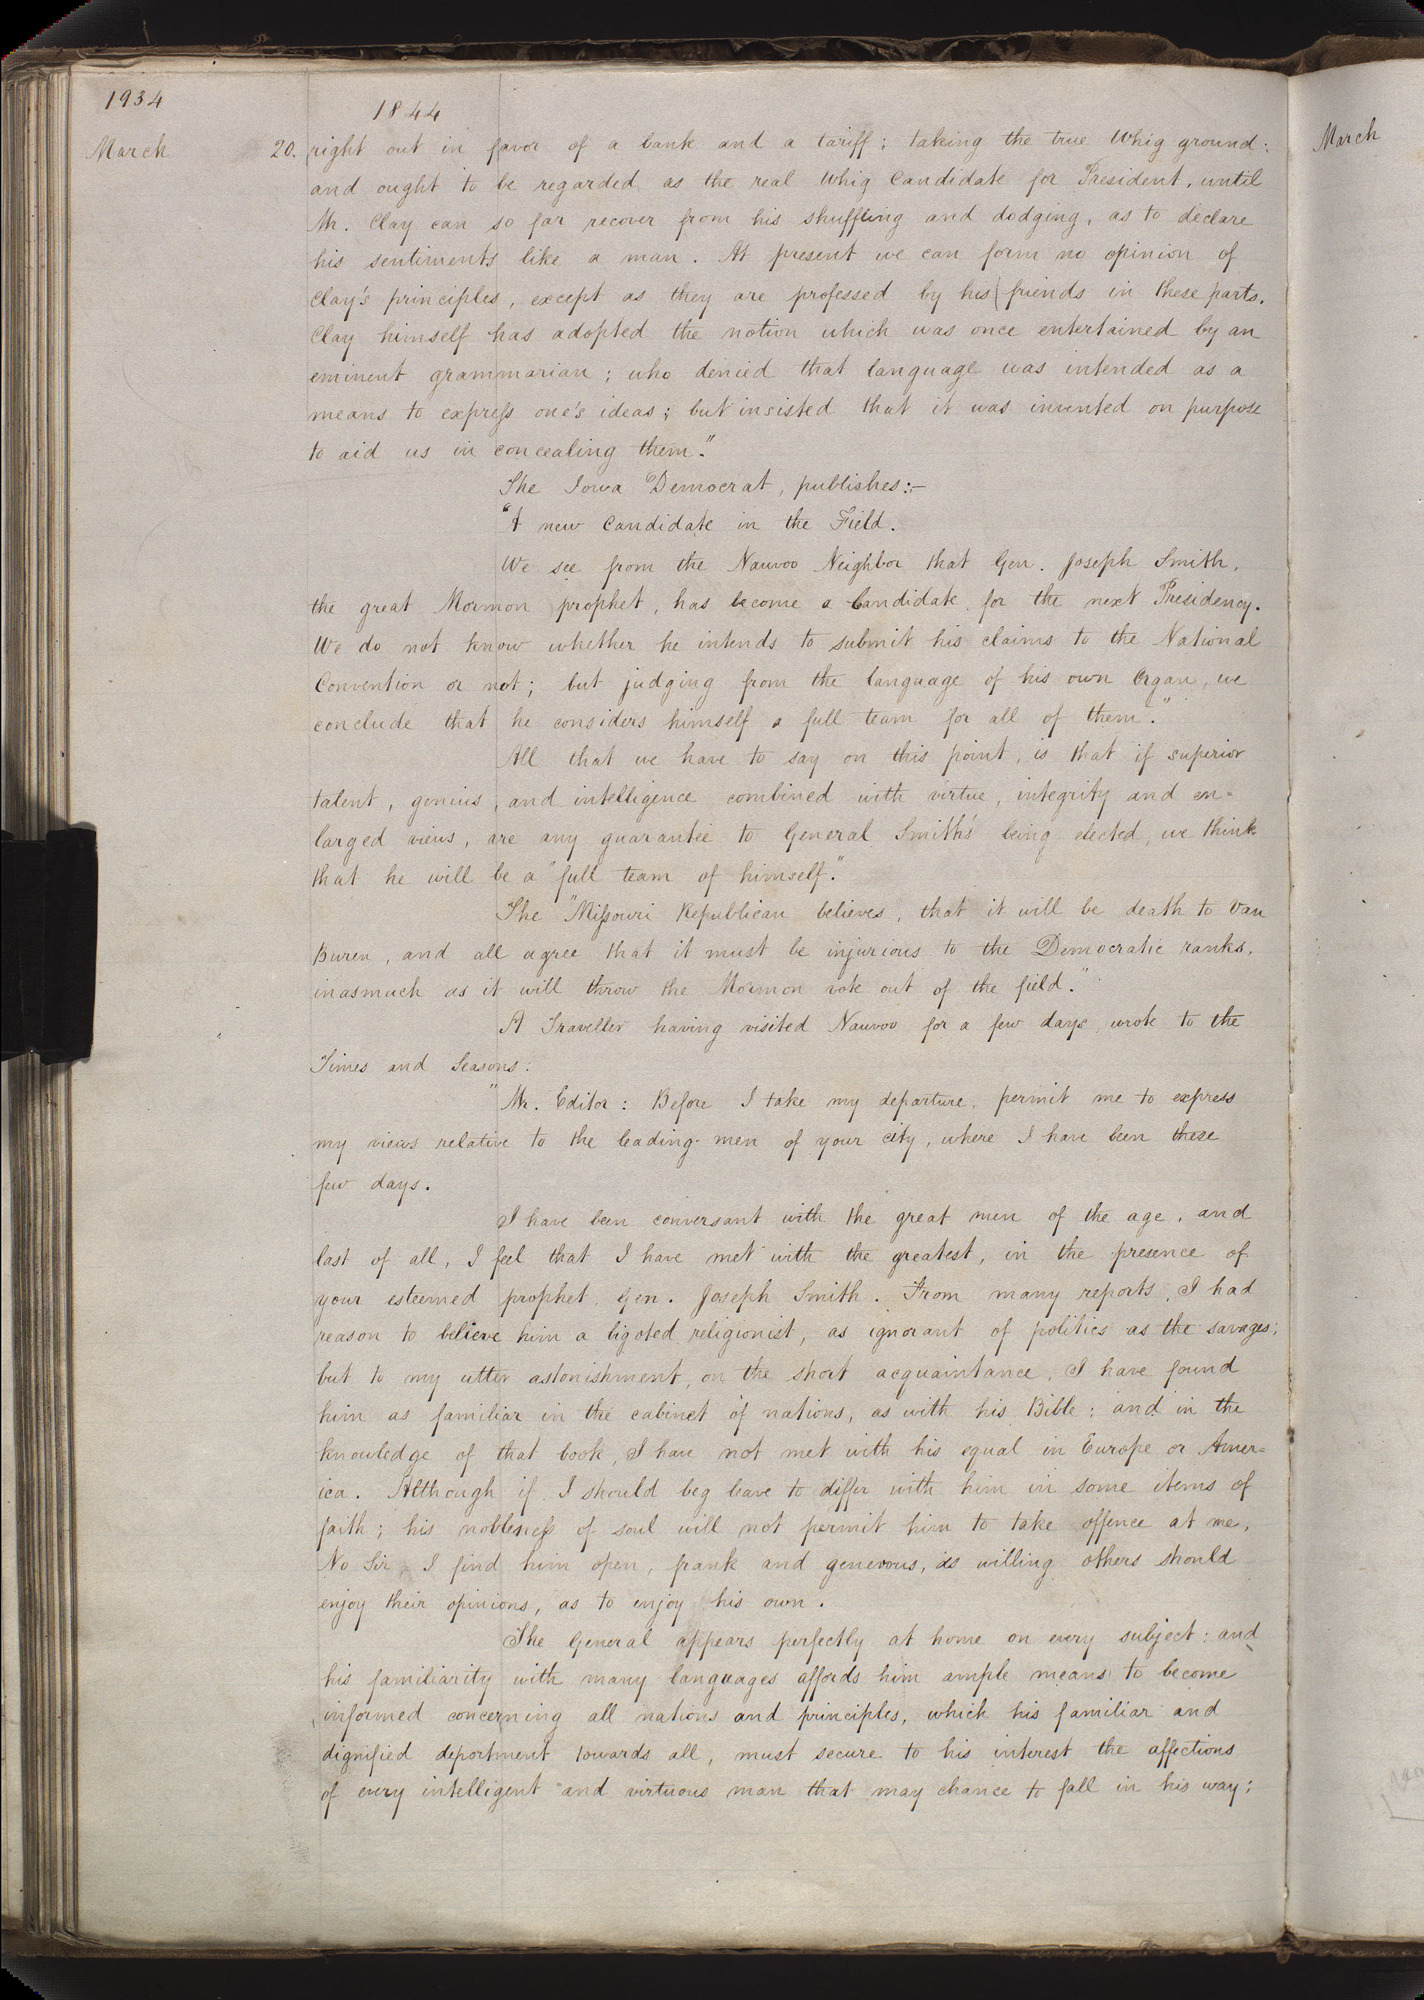 1934
1844
March 20. right out in favor of a bank and a tariff; taking the true Whig ground:
and ought to be regarded as the real Whig Candidate for President, until
Mr. Clay can so far recover from his shuffling and dodging, as to declare
his sentiments like a man. At present we can form no opinion of
Clay's principles, except as they are professed by his friends in these parts.
Clay himself has adopted the notion which was once entertained by an
eminent grammarian; who denied that language was intended as a
means to express one's ideas; but insisted that it was invented on purpose
to aid us in concealing them."
The Iowa Democrat, publishes:—
"A new Candidate in the Field.
We see from the Nauvoo Neighbor that Gen. Joseph Smith,
the great Mormon prophet, has become a Candidate for the next Presidency.
We do not know whether he intends to submit his claims to the National
Convention or not; but judging from the language of his own Organ, we
conclude that he considers himself a full team for all of them."
All that we have to say on this point, is that if superior
talent, genius, and intelligence combined with virtue, integrity and en=
larged views, are any guarantee to General Smith's being elected, we think
that he will be a "full team of himself."
The "Missouri Republican believes, that it will be death to Van
Buren, and all agree that it must be injurious to the Democratic ranks,
inasmuch as it will throw the Mormon vote out of the field."
A Traveller having visited Nauvoo for a few days, wrote to the
Times and Seasons:
"Mr. Editor: Before I take my departure, permit me to express
my views relative to the leading men of your city, where I have been these
few days.
I have been conversant with the great men of the age, and
last of all, I feel that I have met with the greatest, in the presence of
your esteemed prophet, Gen. Joseph Smith. From many reports, I had
reason to believe him a bigoted religionist, as ignorant of politics as the savages;
but to my utter astonishment, on the short acquaintance, I have found
him as familiar in the cabinet of nations, as with his Bible; and in the
knowledge of that book, I have not met with his equal in Europe or Amer=
ica. Although if I should beg leave to differ with him in some items of
faith; his nobleness of soul will not permit him to take offence at me.
No Sir, I find him open, frank and generous, as willing others should
enjoy their opinions, as to enjoy his own.
The General appears perfectly at home on every subject: and
his familiarity with many languages affords him ample means to become
informed concerning all nations and principles, which his familiar and
dignified deportment towards all, must secure to his interest the affections
of every intelligent and virtuous man that may chance to fall in his way;
March